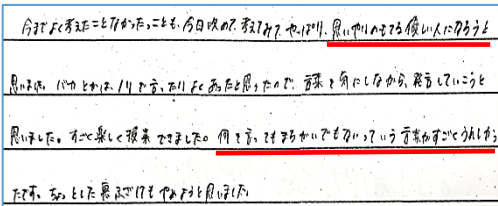 今までよく考えたことなかったことも、今日改めて考えてみて、やっぱり、思いやりのもてる優しい人になろうと
思いました。バカとかは、ノリで言ったりよくあったと思ったので、言葉を気にしながら、発言していこうと
思いました。すごく楽しく授業できました。何を言ってもまちがいでもないっていう言葉がすごくうれしかっ
たです。ちょっとした悪ふざけもやめようと思いました。